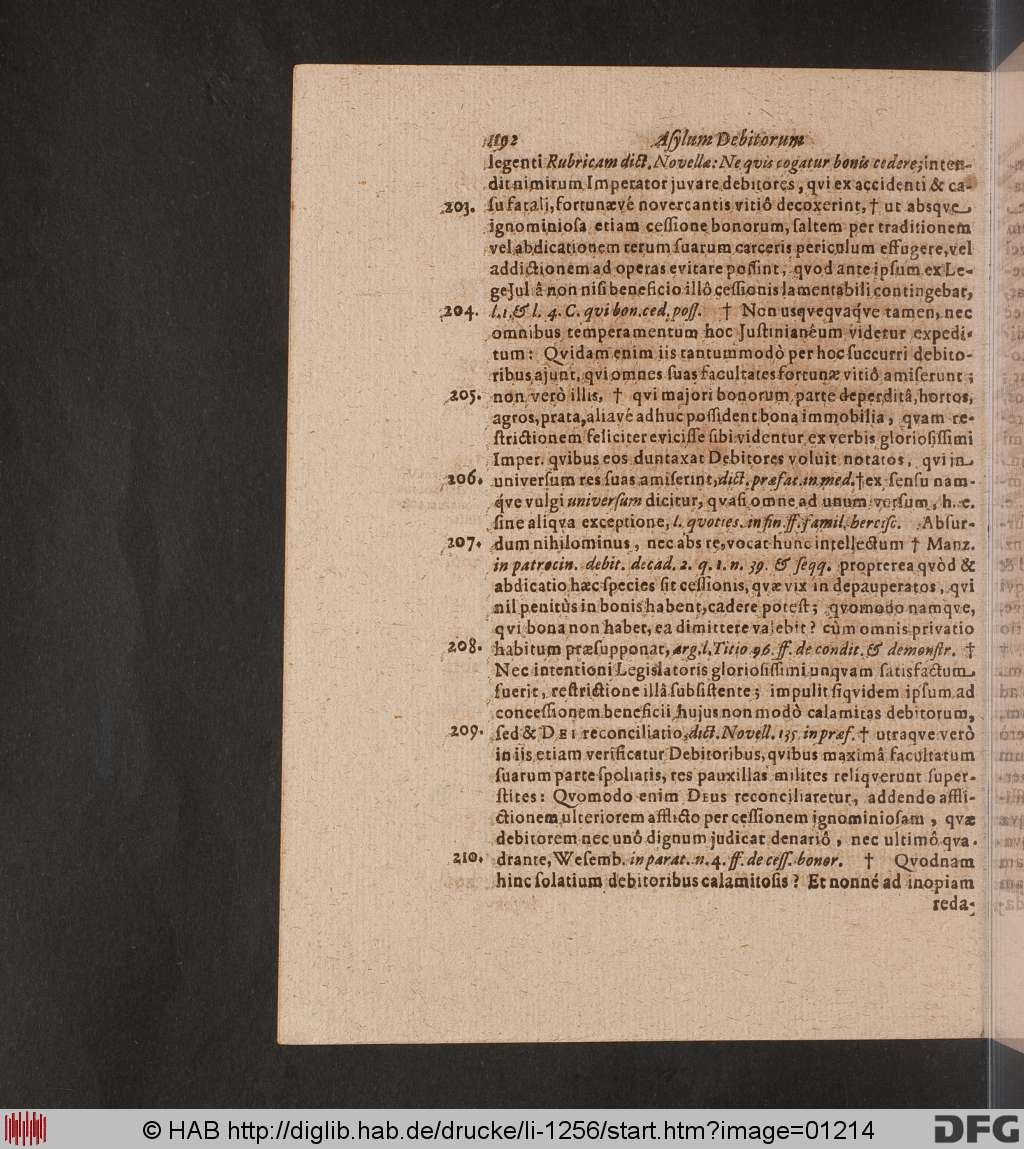 1192 Aſylum Debitorum
legenti Rubricam dict. Novellæ: Ne qvis cogatur bonis cedere; inten-
dit nimirum Imperator juvare debitores, qvi ex accidenti & ca-
203. ſu fatali, fortunævé novercantis vitiô decoxerint, † ut absqve
ignominioſa etiam ceſſione bonorum, ſaltem per traditionem
vel abdicationem rerum ſuarum carceris periculum effugere, vel
addictionem ad operas evitare poſſint, qvod ante ipſum ex Le-
ge Jul â non niſi beneficio illô ceſſionis lamentabili contingebat,
204. l. 1. & l. 4. C. qvi bon. ced. poſſ. † Non usqveqvaqve tamen, nec
omnibus temperamentum hoc Juſtinianéum videtur expedi-
tum: Qvidam enim iis tantummodò per hoc ſuccurri debito-
ribus ajunt, qvi omnes ſuas facultates fortunæ vitiô amiſerunt;
205. non verò illis, † qvi majori bonorum parte deperditâ, hortos,
agros, prata, aliavé adhuc poſſident bona immobilia, qvam re-
ſtrictionem feliciter eviciſſe ſibi videntur ex verbis glorioſiſſimi
Imper. qvibus eos duntaxat Debitores voluit notatos, qvi in
206. univerſum res ſuas amiſerint, dict. præfat. in med. † ex ſenſu nam-
qve vulgi univerſum dicitur, qvaſi omne ad unum verſum, h. e.
ſine aliqva exceptione, l. qvoties. in fin. ff. famil. herciſc. Abſur-
207. dum nihilominus, nec abs re, vocat hunc intellectum † Manz.
in patrocin. debit. decad. 2. q. 1. n. 39. & ſeqq. propterea qvòd &
abdicatio hæc ſpecies ſit ceſſionis, qvæ vix in depauperatos, qvi
nil penitùs in bonis habent, cadere poteſt; qvomodo namqve,
qvi bona non habet, ea dimittere valebit? cùm omnis privatio
208. habitum præſupponat, arg. l. Titio 96. ff. de condit. & demonſtr. †
Nec intentioni Legislatoris glorioſiſſimi unqvam ſatisfactum
fuerit, reſtrictione illâ ſubſiſtente; impulit ſiqvidem ipſum ad
conceſſionem beneficii hujus non modò calamitas debitorum,
209. ſed & DEI reconciliatio, dict. Novell. 135 in præf. † utraqve verò
in iis etiam verificatur Debitoribus, qvibus maximâ facultatum
ſuarum parte ſpoliatis, res pauxillas milites reliqverunt ſuper-
ſtites: Qvomodo enim DEUS reconciliaretur, addendo affli-
ctionem ulteriorem afflicto per ceſſionem ignominioſam, qvæ
debitorem nec unô dignum judicat denariô, nec ultimô qva-
210. drante, Weſemb. in parat. n. 4. ff. de ceſſ. bonor. † Qvodnam
hinc ſolatium debitoribus calamitoſis? Et nonné ad inopiam
reda-
© HAB http://diglib.hab.de/drucke/li-1256/start.htm?image=01214
DFG